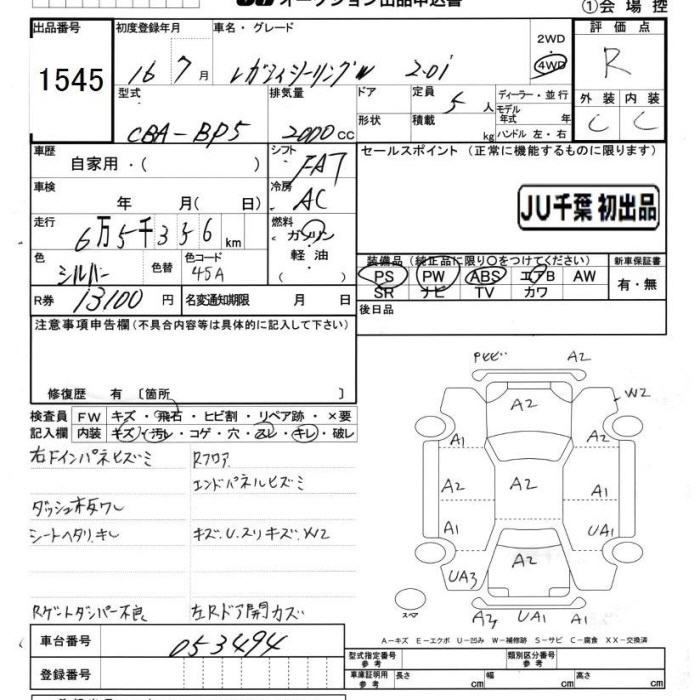 オークション出品申込書
①会場控
出品番号 1545
初度登録年月 16 7月
車名・グレード レガシィツーリングW 2.0i
2WD
4WD
評価点 R
型式 CBA-BP5
排気量 2000 CC
ドア
形状
定員 5 人
積載 kg
ディーラー・並行
モデル年式 年
ハンドル 左・右
外装 内装
C C
車歴 自家用・( )
シフト FAT
セールスポイント (正常に機能するものに限ります)
車検 年 月( 日)
冷房 AC
JU千葉 初出品
走行 6万5千356 km
燃料 ガソリン
軽油
( )
色 シルバー
色替
色コード 45A
装備品 (純正品に限り〇をつけてください)
PS PW ABS エアB AW
SR ナビ TV カワ
新車保証書
有・無
R券 13100 円
名変通知期限 月 日
後日品
注意事項申告欄 (不具合内容等は具体的に記入して下さい)
修復歴 有 〔箇所 〕
検査員 FW キズ・飛石・ヒビ割・リペア跡・×要
記入欄 内装 キズ・汚レ・コゲ・穴・スレ・キレ・破レ
右Fインパネヒズミ Rフロア
エンドパネルヒズミ
ダッシュ板ワレ
シートヘタリ.キレ キズ.U.スリキズ.W2
Rゲートダンパー不良 左Rドア開カズ
Pヒビ A2
A2 W2
A1 A1
A2 A2 A1
A1 UA1
UA3 A2
スペア A3 UA1 A1
A-キズ E-エクボ U-凹み W-補修跡 S-サビ C-腐食 XX-交換済
車台番号 053494
型式指定番号 参考
類別区分番号 参考
登録番号
車庫証明用 参考 長さ cm 幅 cm 高さ cm